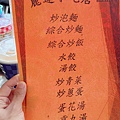 炒泡麵
綜合炒麵
綜合炒飯
水餃
湯餃
炒青菜
炒蔥蛋
蛋花湯